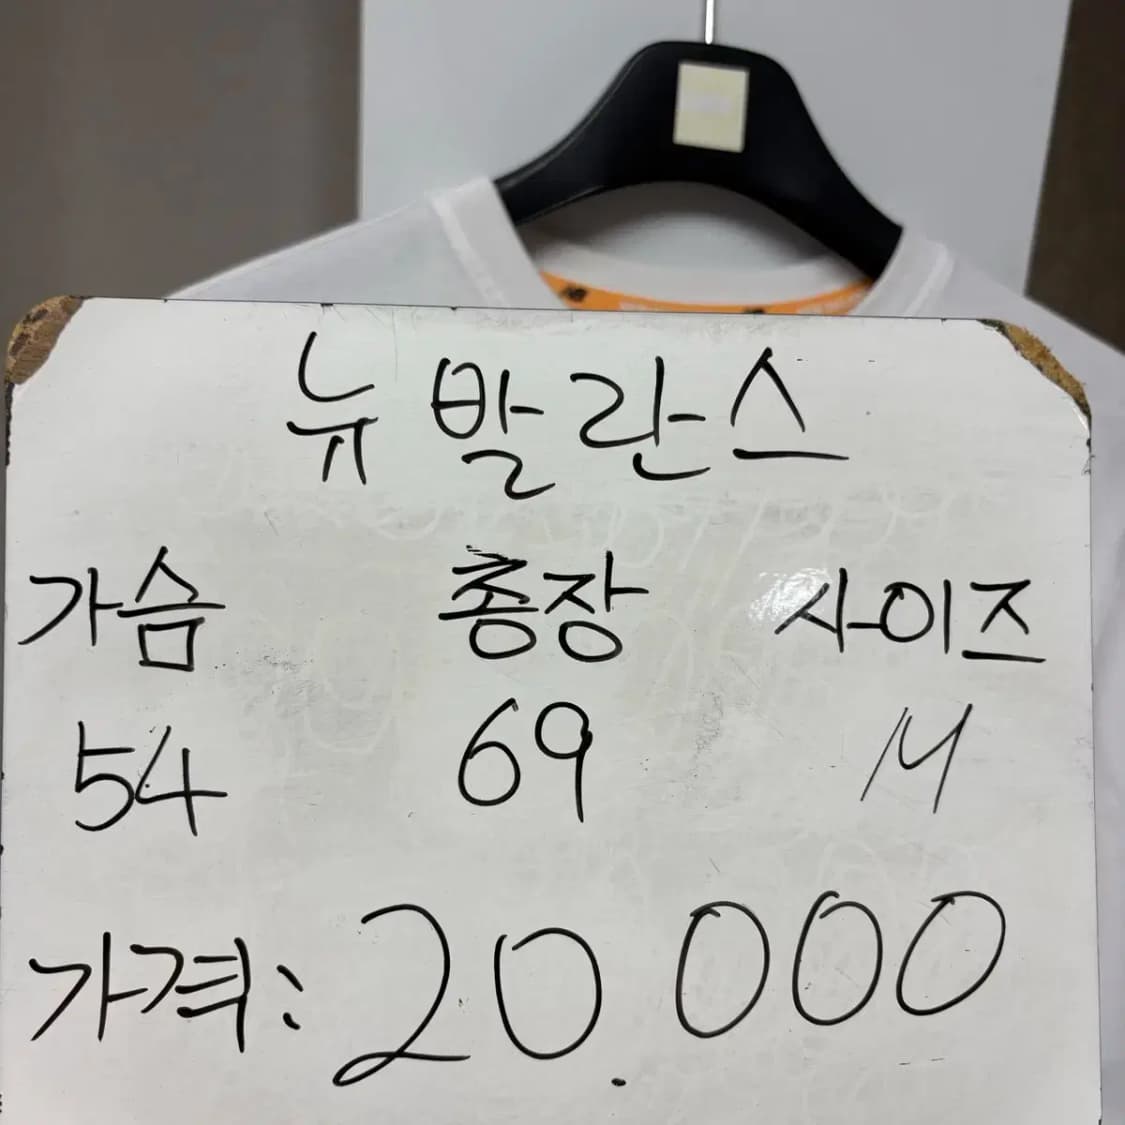 뉴발란스
가슴 총장 사이즈
54 69 M
가격: 20.000